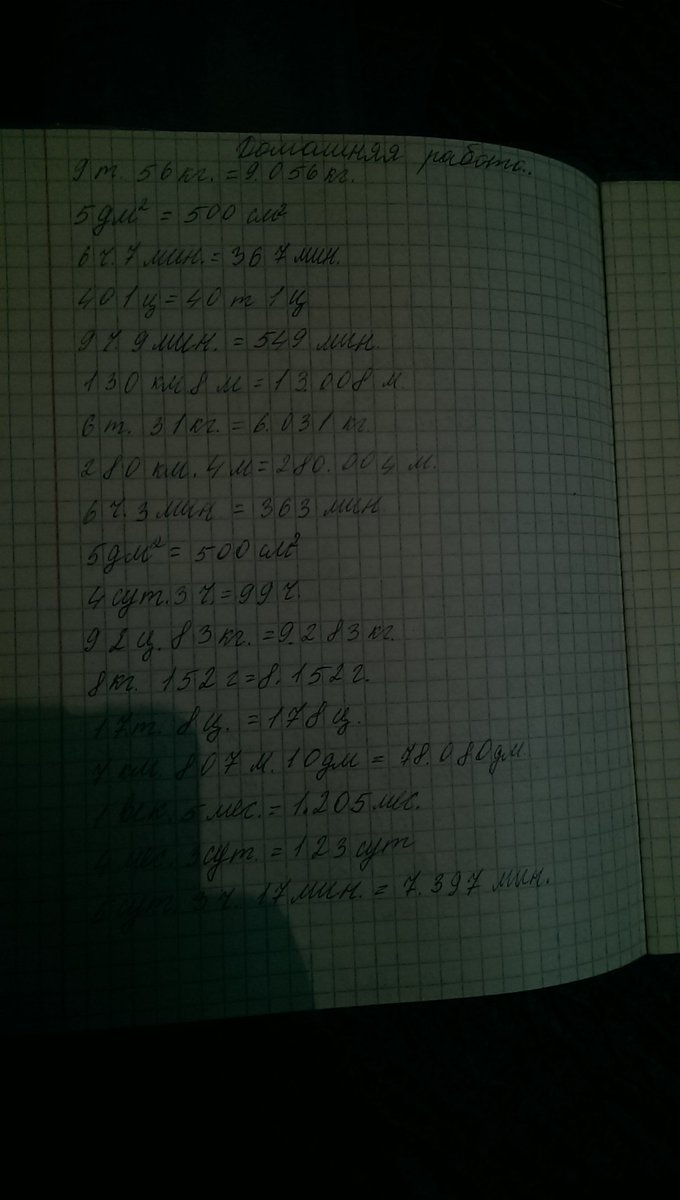 Домашняя работа.
9т. 56кг. = 9.056кг.
5дм² = 500 см²
6ч. 7 мин. = 367 мин.
401ц = 40т 1ц
9ч. 9мин. = 549 мин.
130 км 8 м = 13.008 м
6т. 31кг. = 6.031 кг.
280 км. 4м = 280.004 м.
6ч. 3мин = 363 мин
5дм² = 500 см²
4сут. 3ч. = 99ч.
92ц. 83кг. = 9.283кг.
8кг. 152г = 8.152г.
17т. 8ц. = 178ц.
7 км. 807м. 10дм = 78.080дм
1 век. 5мес. = 1.205мес.
мес. 3сут. = 123сут
3ч. 17мин. = 7.397 мин.